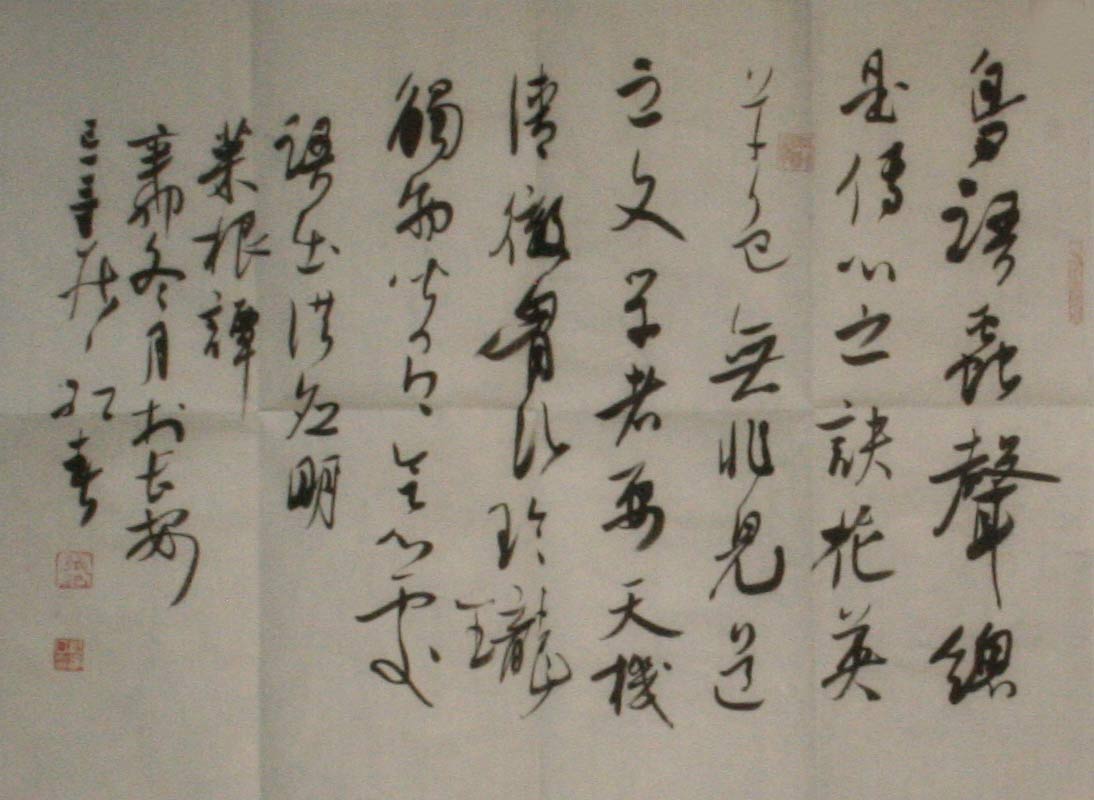 鳥語蟲聲總
是傳心之訣花英
草色無非見道
之文学者要天機
清徹胷次玲瓏
觸物皆有会心處
語出洪应明
菜根譚
辛卯冬月於长安